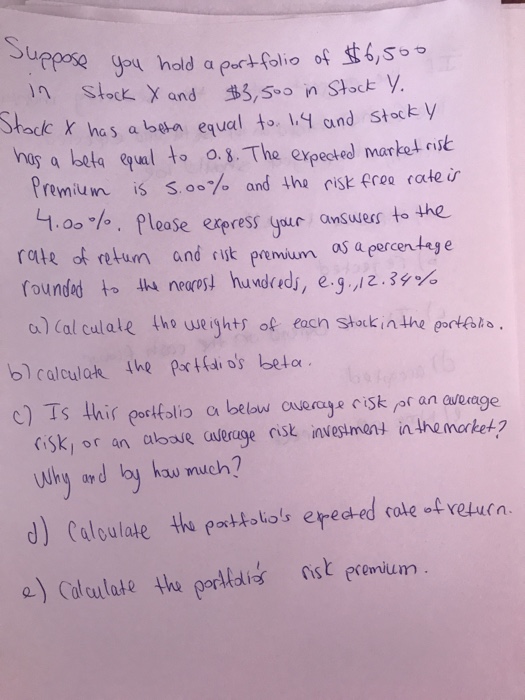 Suppose you hold a portfolio of $6,500
in Stock X and $3,500 in Stock Y.
Stock X has a beta equal to 1.4 and stock Y
has a beta equal to 0.8. The expected market risk
Premium is 5.00% and the risk free rate is
4.00%. Please express your answers to the
rate of return and risk premium as a percentage
rounded to the nearest hundreds, e.g., 12.34%
a) Calculate the weights of each stock in the portfolio.
b) calculate the portfolio's beta.
c) Is this portfolio a below average risk, or an average
risk, or an above average risk investment in the market?
Why and by how much?
d) Calculate the portfolio's expected rate of return.
e) Calculate the portfolio's risk premium.